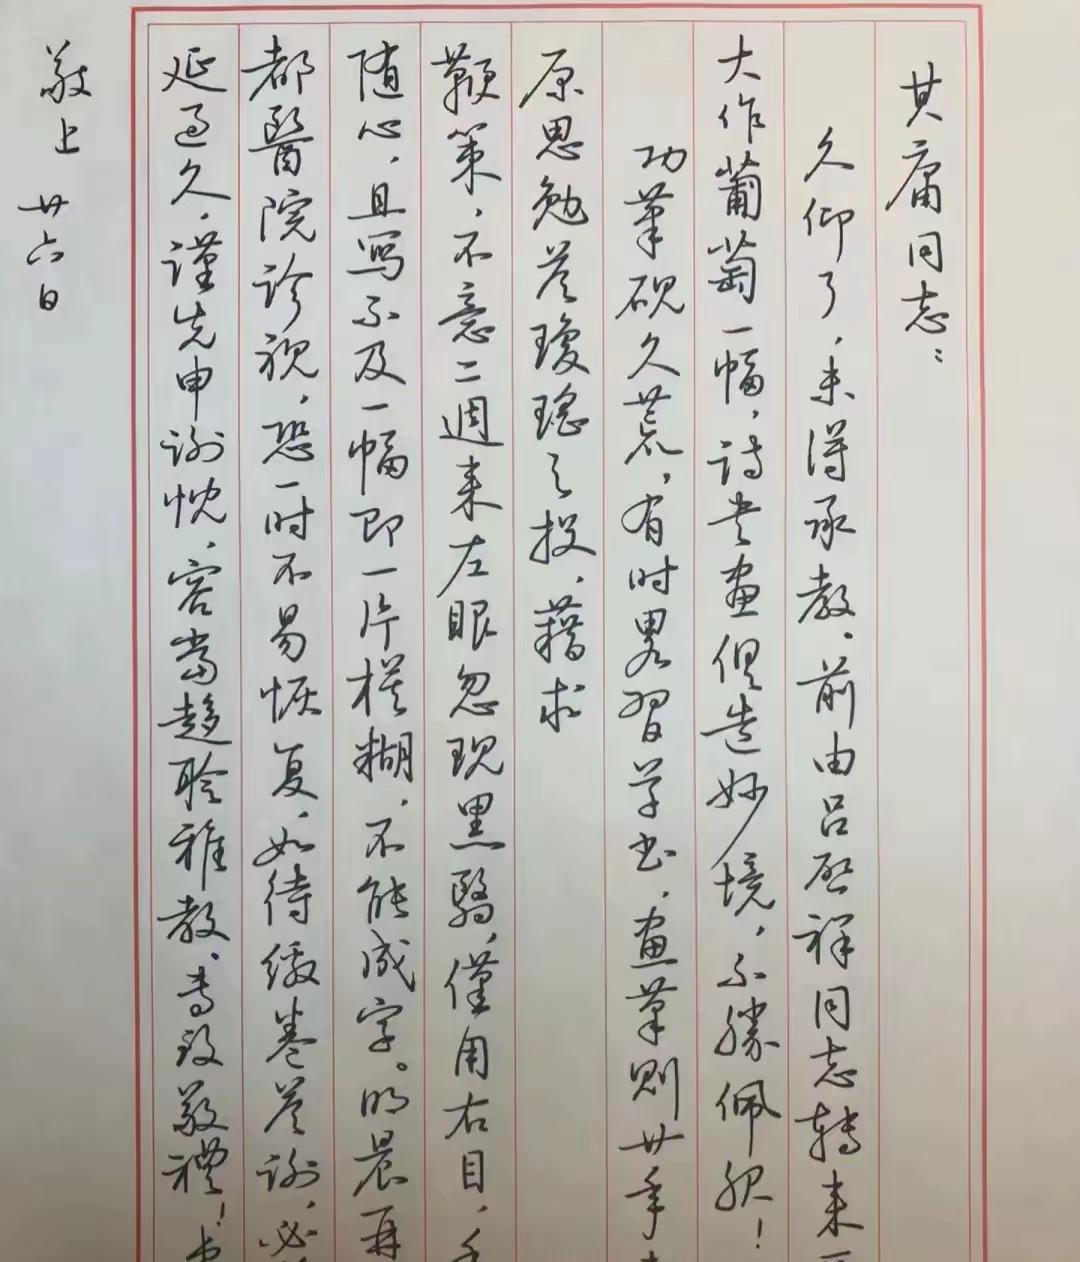 其庸同志：
久仰了，未得承教，前由吕启祥同志转来
大作葡萄一幅，诗书画俱造妙境，不胜佩服！
功笔砚久荒，有时略习学书，画笔则廿年
原思勉答瓊瑶之投，藉求
鞭策，不意二週来左眼忽现黑翳，僅用右目，手
随心，且写不及一幅即一片模糊，不能成字。明晨再
都醫院诊视，恐一时不易恢复，如待缴卷答谢，必
延过久，谨先申谢忱，容當趋聆雅教，专致敬禮！
敬上 廿六日